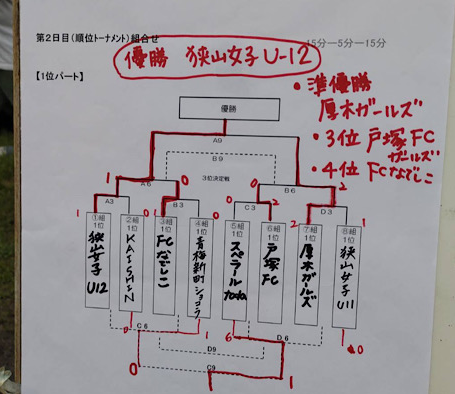 第2日目(順位トーナメント)組合せ
15分―5分―15分
優勝 狭山女子U-12
【1位パート】
・準優勝
厚木ガールズ
・3位 戸塚FC
ガールズ
・4位 FCなでしこ
優勝
A9
B9
3位決定戦
1 A6 0
0 B6 2
1 A3 0
1 B3 0
0 C3 2
2 D3 1
①組 1位 狭山女子 U12
②組 1位 KAISHIN
③組 1位 FCなでしこ
④組 1位 青梅新町ジョコラ
⑤組 1位 スペラール
⑥組 1位 戸塚FC
⑦組 1位 厚木ガールズ
⑧組 1位 狭山女子 U11
C6
D6
0 1 6 0
D9
0 C9 1